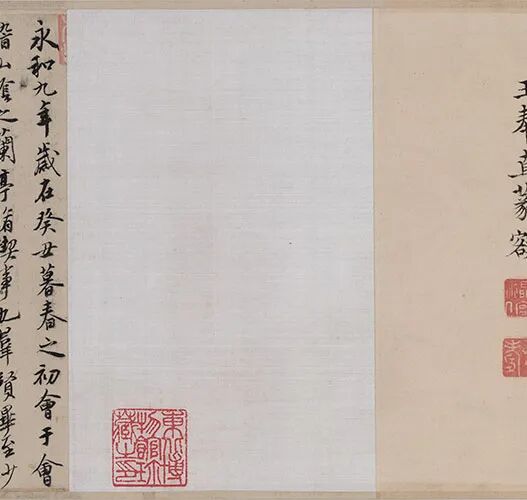 王奉直
東北博
物館珍
藏之印
永和九年歲在癸丑暮春之初會于會
稽山陰之蘭亭脩禊事也羣賢畢至少